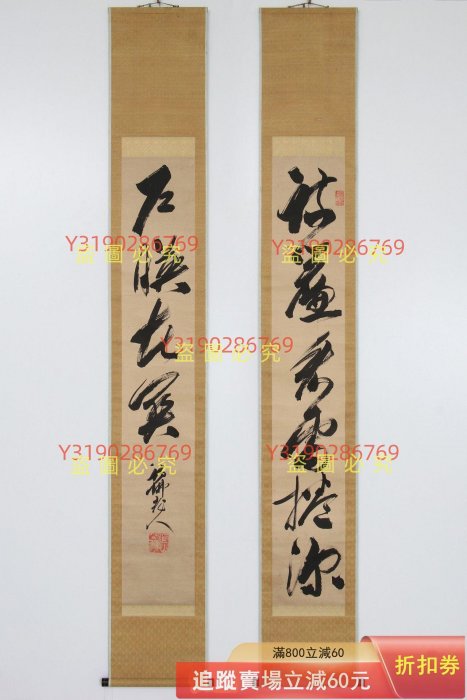 疎簾看雪捲深
戸映花関
Y3190286769
盜圖必究
Y3190286769
盜圖必究
Y3190286769
盜圖必究
Y3190286769
盜圖必究
Y3190286769
盜圖必究
滿800立減60
追蹤賣場立減60元
折扣券